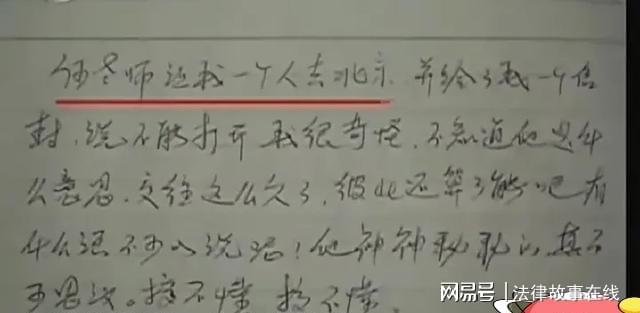 伍老师让我一个人去北京 并给了我一个信
封,说不能打开 我很奇怪,不知道他是什
么意思,交往这么久了,彼此还算了解吧 有
什么话不可以说呢!他神神秘秘的,真不
可思议。搞不懂 搞不懂。
网易号 | 法律故事在线